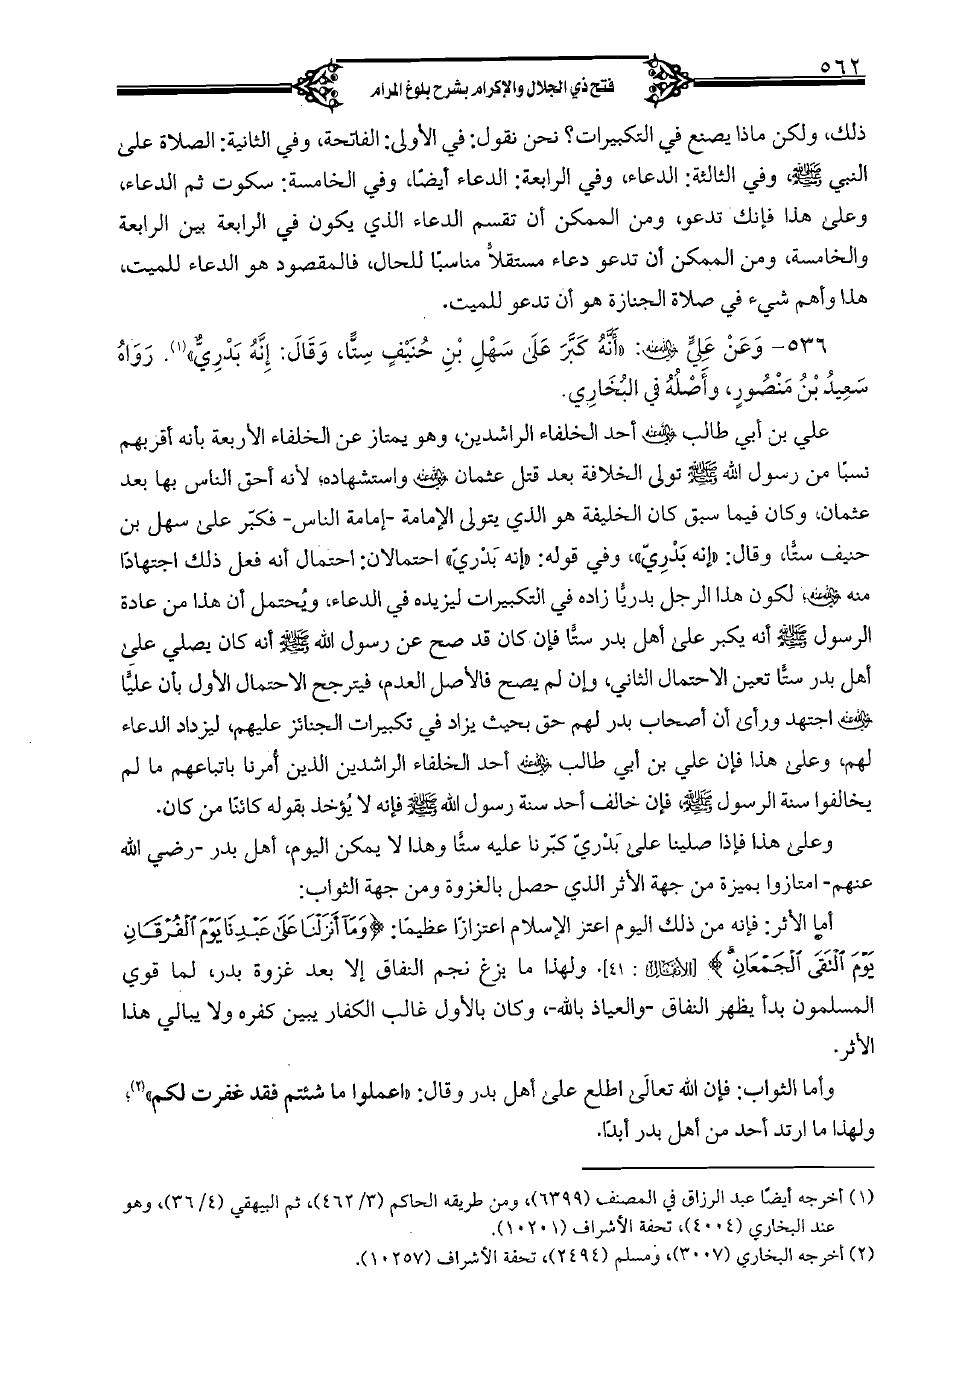 ٥٦٢
فتح ذي الجلال والإكرام بشرح بلوغ المرام
ذلك، ولكن ماذا يصنع في التكبيرات؟ نحن نقول: في الأولى: الفاتحة، وفي الثانية: الصلاة على
النبي ﷺ، وفي الثالثة: الدعاء، وفي الرابعة: الدعاء أيضًا، وفي الخامسة: سكوت ثم الدعاء،
وعلى هذا فإنك تدعو، ومن الممكن أن تقسم الدعاء الذي يكون في الرابعة بين الرابعة
والخامسة، ومن الممكن أن تدعو دعاء مستقلاً مناسبًا للحال، فالمقصود هو الدعاء للميت،
هذا وأهم شيء في صلاة الجنازة هو أن تدعو للميت.
٥٣٦- وَعَنْ عَلِيٍّ رضي الله عنه: «أَنَّهُ كَبَّرَ عَلَى سَهْلِ بْنِ حُنَيْفٍ سِتًّا، وَقَالَ: إِنَّهُ بَدْرِيٌّ»(١). رَوَاهُ
سَعِيدُ بْنُ مَنْصُورٍ، وأَصْلُهُ فِي البُخَارِي.
علي بن أبي طالب رضي الله عنه أحد الخلفاء الراشدين، وهو يمتاز عن الخلفاء الأربعة بأنه أقربهم
نسبًا من رسول الله ﷺ تولى الخلافة بعد قتل عثمان رضي الله عنه واستشهاده؛ لأنه أحق الناس بها بعد
عثمان، وكان فيما سبق كان الخليفة هو الذي يتولى الإمامة -إمامة الناس- فكبّر على سهل بن
حنيف ستًّا، وقال: «إنه بَدْرِيّ»، وفي قوله: «إنه بَدْريّ» احتمالان: احتمال أنه فعل ذلك اجتهادًا
منه رضي الله عنه؛ لكون هذا الرجل بدريًّا زاده في التكبيرات ليزيده في الدعاء، ويُحتمل أن هذا من عادة
الرسول ﷺ أنه يكبر على أهل بدر ستًّا فإن كان قد صح عن رسول الله ﷺ أنه كان يصلي على
أهل بدر ستًّا تعين الاحتمال الثاني، وإن لم يصح فالأصل العدم، فيترجح الاحتمال الأول بأن عليًّا
رضي الله عنه اجتهد ورأى أن أصحاب بدر لهم حق بحيث يزاد في تكبيرات الجنائز عليهم، ليزداد الدعاء
لهم، وعلى هذا فإن علي بن أبي طالب رضي الله عنه أحد الخلفاء الراشدين الذين أُمرنا باتباعهم ما لم
يخالفوا سنة الرسول ﷺ، فإن خالف أحد سنة رسول الله ﷺ فإنه لا يُؤخذ بقوله كائنًا من كان.
وعلى هذا فإذا صلينا على بَدْريّ كبّرنا عليه ستًّا وهذا لا يمكن اليوم، أهل بدر -رضي الله
عنهم- امتازوا بميزة من جهة الأثر الذي حصل بالغزوة ومن جهة الثواب:
أما الأثر: فإنه من ذلك اليوم اعتز الإسلام اعتزازًا عظيمًا: ﴿وَمَآ أَنزَلْنَا عَلَىٰ عَبْدِنَا يَوْمَ ٱلْفُرْقَانِ
يَوْمَ ٱلْتَقَى ٱلْجَمْعَانِ﴾ [الأنفال : ٤١]. ولهذا ما بزغ نجم النفاق إلا بعد غزوة بدر، لما قوي
المسلمون بدأ يظهر النفاق -والعياذ بالله-، وكان بالأول غالب الكفار يبين كفره ولا يبالي هذا
الأثر.
وأما الثواب: فإن الله تعالَى اطلع على أهل بدر وقال: «اعملوا ما شئتم فقد غفرت لكم»(٢)؛
ولهذا ما ارتد أحد من أهل بدر أبدًا.
(١) أخرجه أيضًا عبد الرزاق في المصنف (٦٣٩٩)، ومن طريقه الحاكم (٣/ ٤٦٢)، ثم البيهقي (٤/ ٣٦)، وهو
عند البخاري (٤٠٠٤)، تحفة الأشراف (١٠٢٠١).
(٢) أخرجه البخاري (٣٠٠٧)، ومسلم (٢٤٩٤)، تحفة الأشراف (١٠٢٥٧).